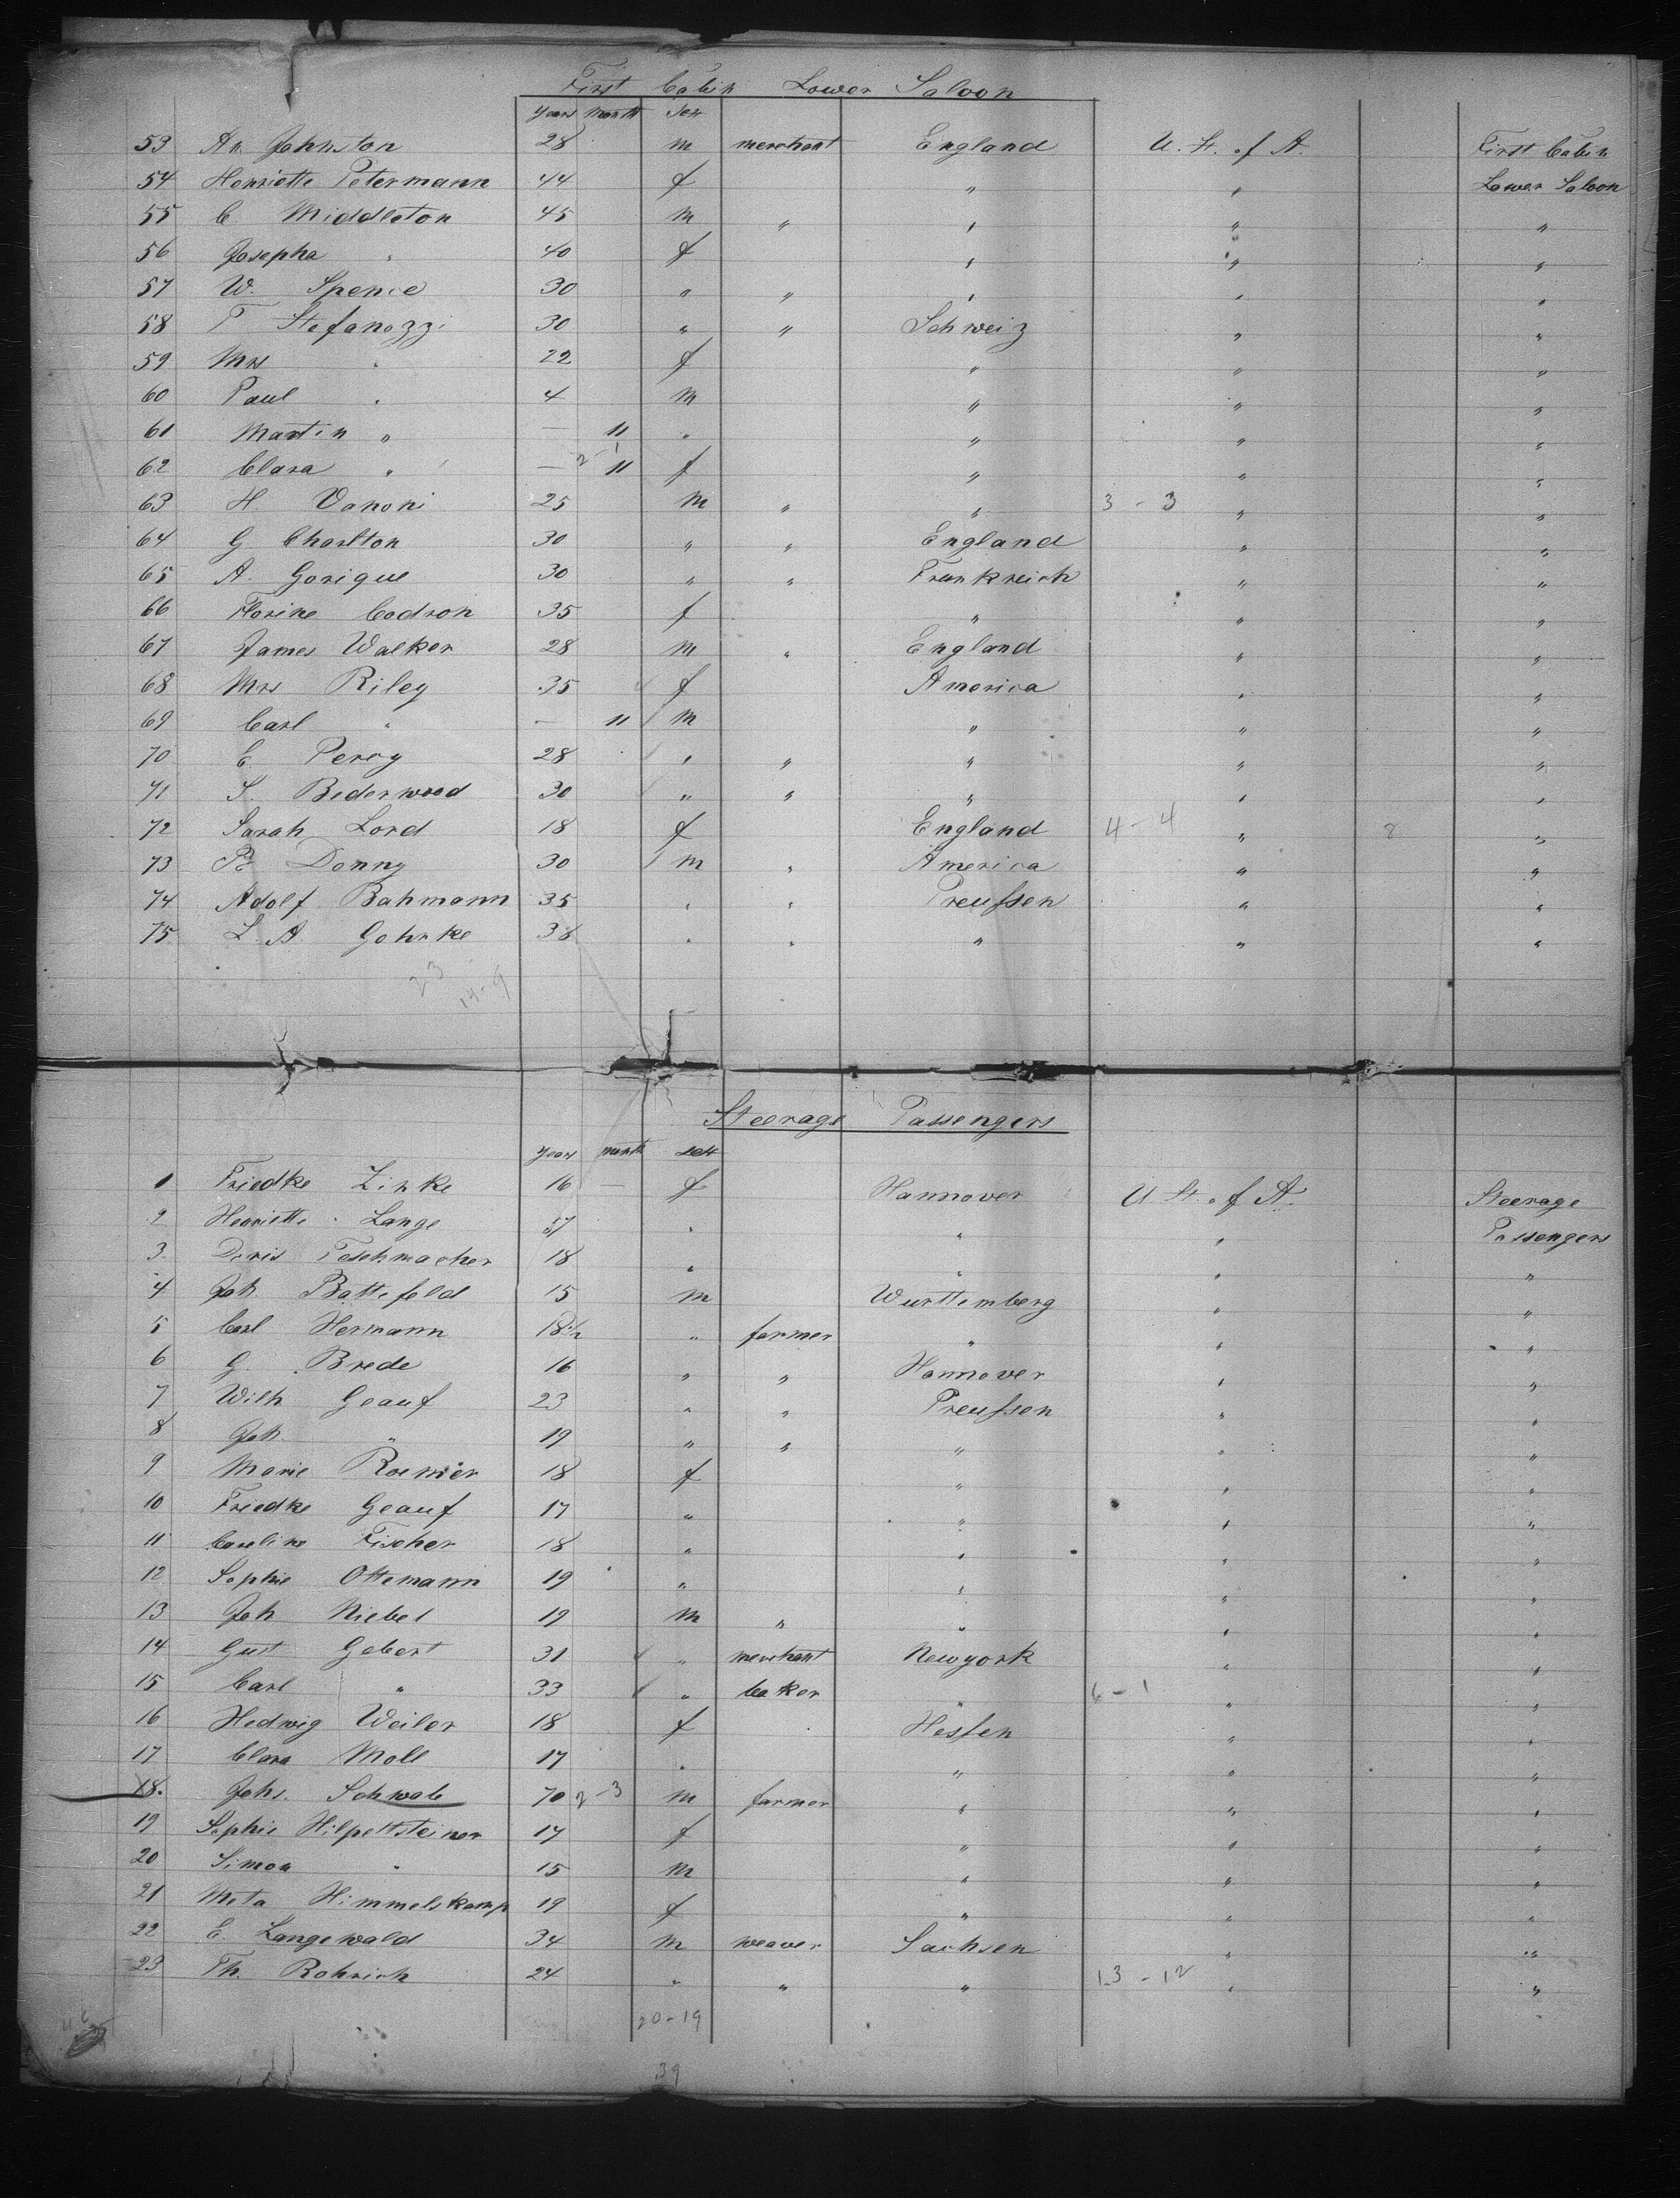 First Cabin Lower Saloon
Years Month Sex
53 An Johnston 28 m merchant England U. St. of A. First Cabin
54 Henriette Petermann 44 f " " Lower Saloon
55 C. Middleton 45 m " " " "
56 Josepha " 40 f " " "
57 W. Spence 30 " " " " "
58 T Stefanozzi 30 " " Schweiz " "
59 Mrs " 22 f " " "
60 Paul " 4 m " " "
61 Martin " — 11 " " " "
62 Clara " — 2-1 11 f " " "
63 H. Vanoni 25 m " " 3-3 " "
64 G Charlton 30 " " England " "
65 A. Gorique 30 " " Frankreich " "
66 Florine Codron 35 f " " "
67 James Walker 28 m " England " "
68 Mrs Riley 35 f America " "
69 Carl " — 11 m " " "
70 E. Percy 28 " " " " "
71 S. Bederwood 30 " " " " "
72 Sarah Lord 18 f England 4-4 " 8 "
73 Donny 30 m " America " "
74 Adolf Bahmann 35 " " Preussen " "
75 L. A. Gohrke 38 " " " " "
23
14-9
Steerage Passengers
years month sex
1 Friedke Zinke 16 — f Hannover U St. of A. Steerage
2 Henriette Lange 57 " " " Passengers
3 Doris Teschmacher 18 " " " "
4 Joh Battefeld 15 m Wurttemberg " "
5 Carl Hermann 18 1/2 " farmer " " "
6 G. Brede 16 " " Hannover " "
7 Wilh Geauf 23 " " Preussen " "
8 Joh " 19 " " " " "
9 Marie Roemer 18 f " " "
10 Friedke Geauf 17 " " " "
11 Caroline Fischer 18 " " " "
12 Sophie Ottemann 19 " " " "
13 Joh Niebel 19 m " " " "
14 Gust Gebert 31 " merchant Newyork " "
15 Carl " 33 " baker " 6-1 " "
16 Hedwig Weiler 18 f Hessen " "
17 Clara Moll 17 " " " "
18. Johs. Schwab 70 2-3 m farmer " " "
19 Sophie Hilpettsteiner 17 f " " "
20 Simon " 15 m " " "
21 Meta Himmelskamp 19 f " " "
22 E. Langewald 34 m weaver Sachsen " "
23 Th. Rohrich 24 " " " 13-12 " "
20-19
39